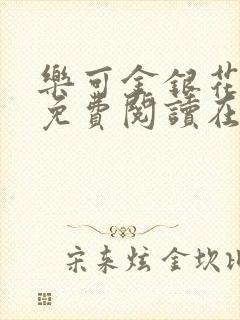 樂可金銀花
免費閱讀在
宋来炫 金坎比